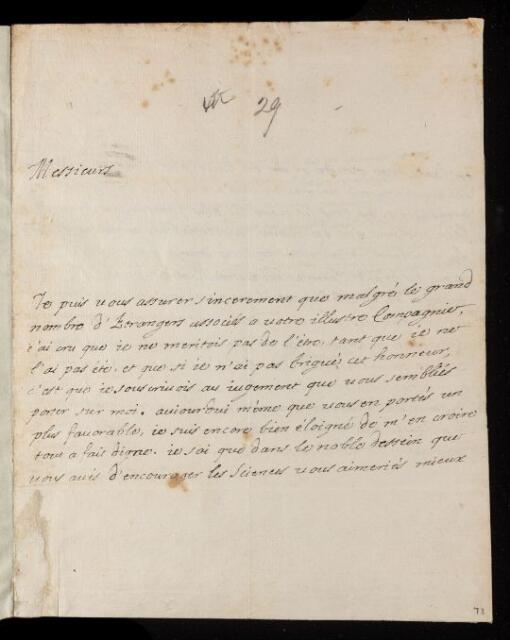 29
Messieurs
Je puis vous assurer sincerement que malgré le grand
nombre d'Etrangers associés a votre illustre Compagnie,
i'ai cru que ie ne meritois pas de l'être, tant que ie ne
l'ai pas été, et que si ie n'ai pas brigué cet honneur,
c'est que ie souscrivois au iugement que vous semblies
porter sur moi. auiourdui même que vous en portés un
plus favorable, ie suis encore bien éloigné de m'en croire
tout a fait digne. ie sai que dans le noble dessein que
vous avés d'encourager les Sciences vous aimeriés mieux
71